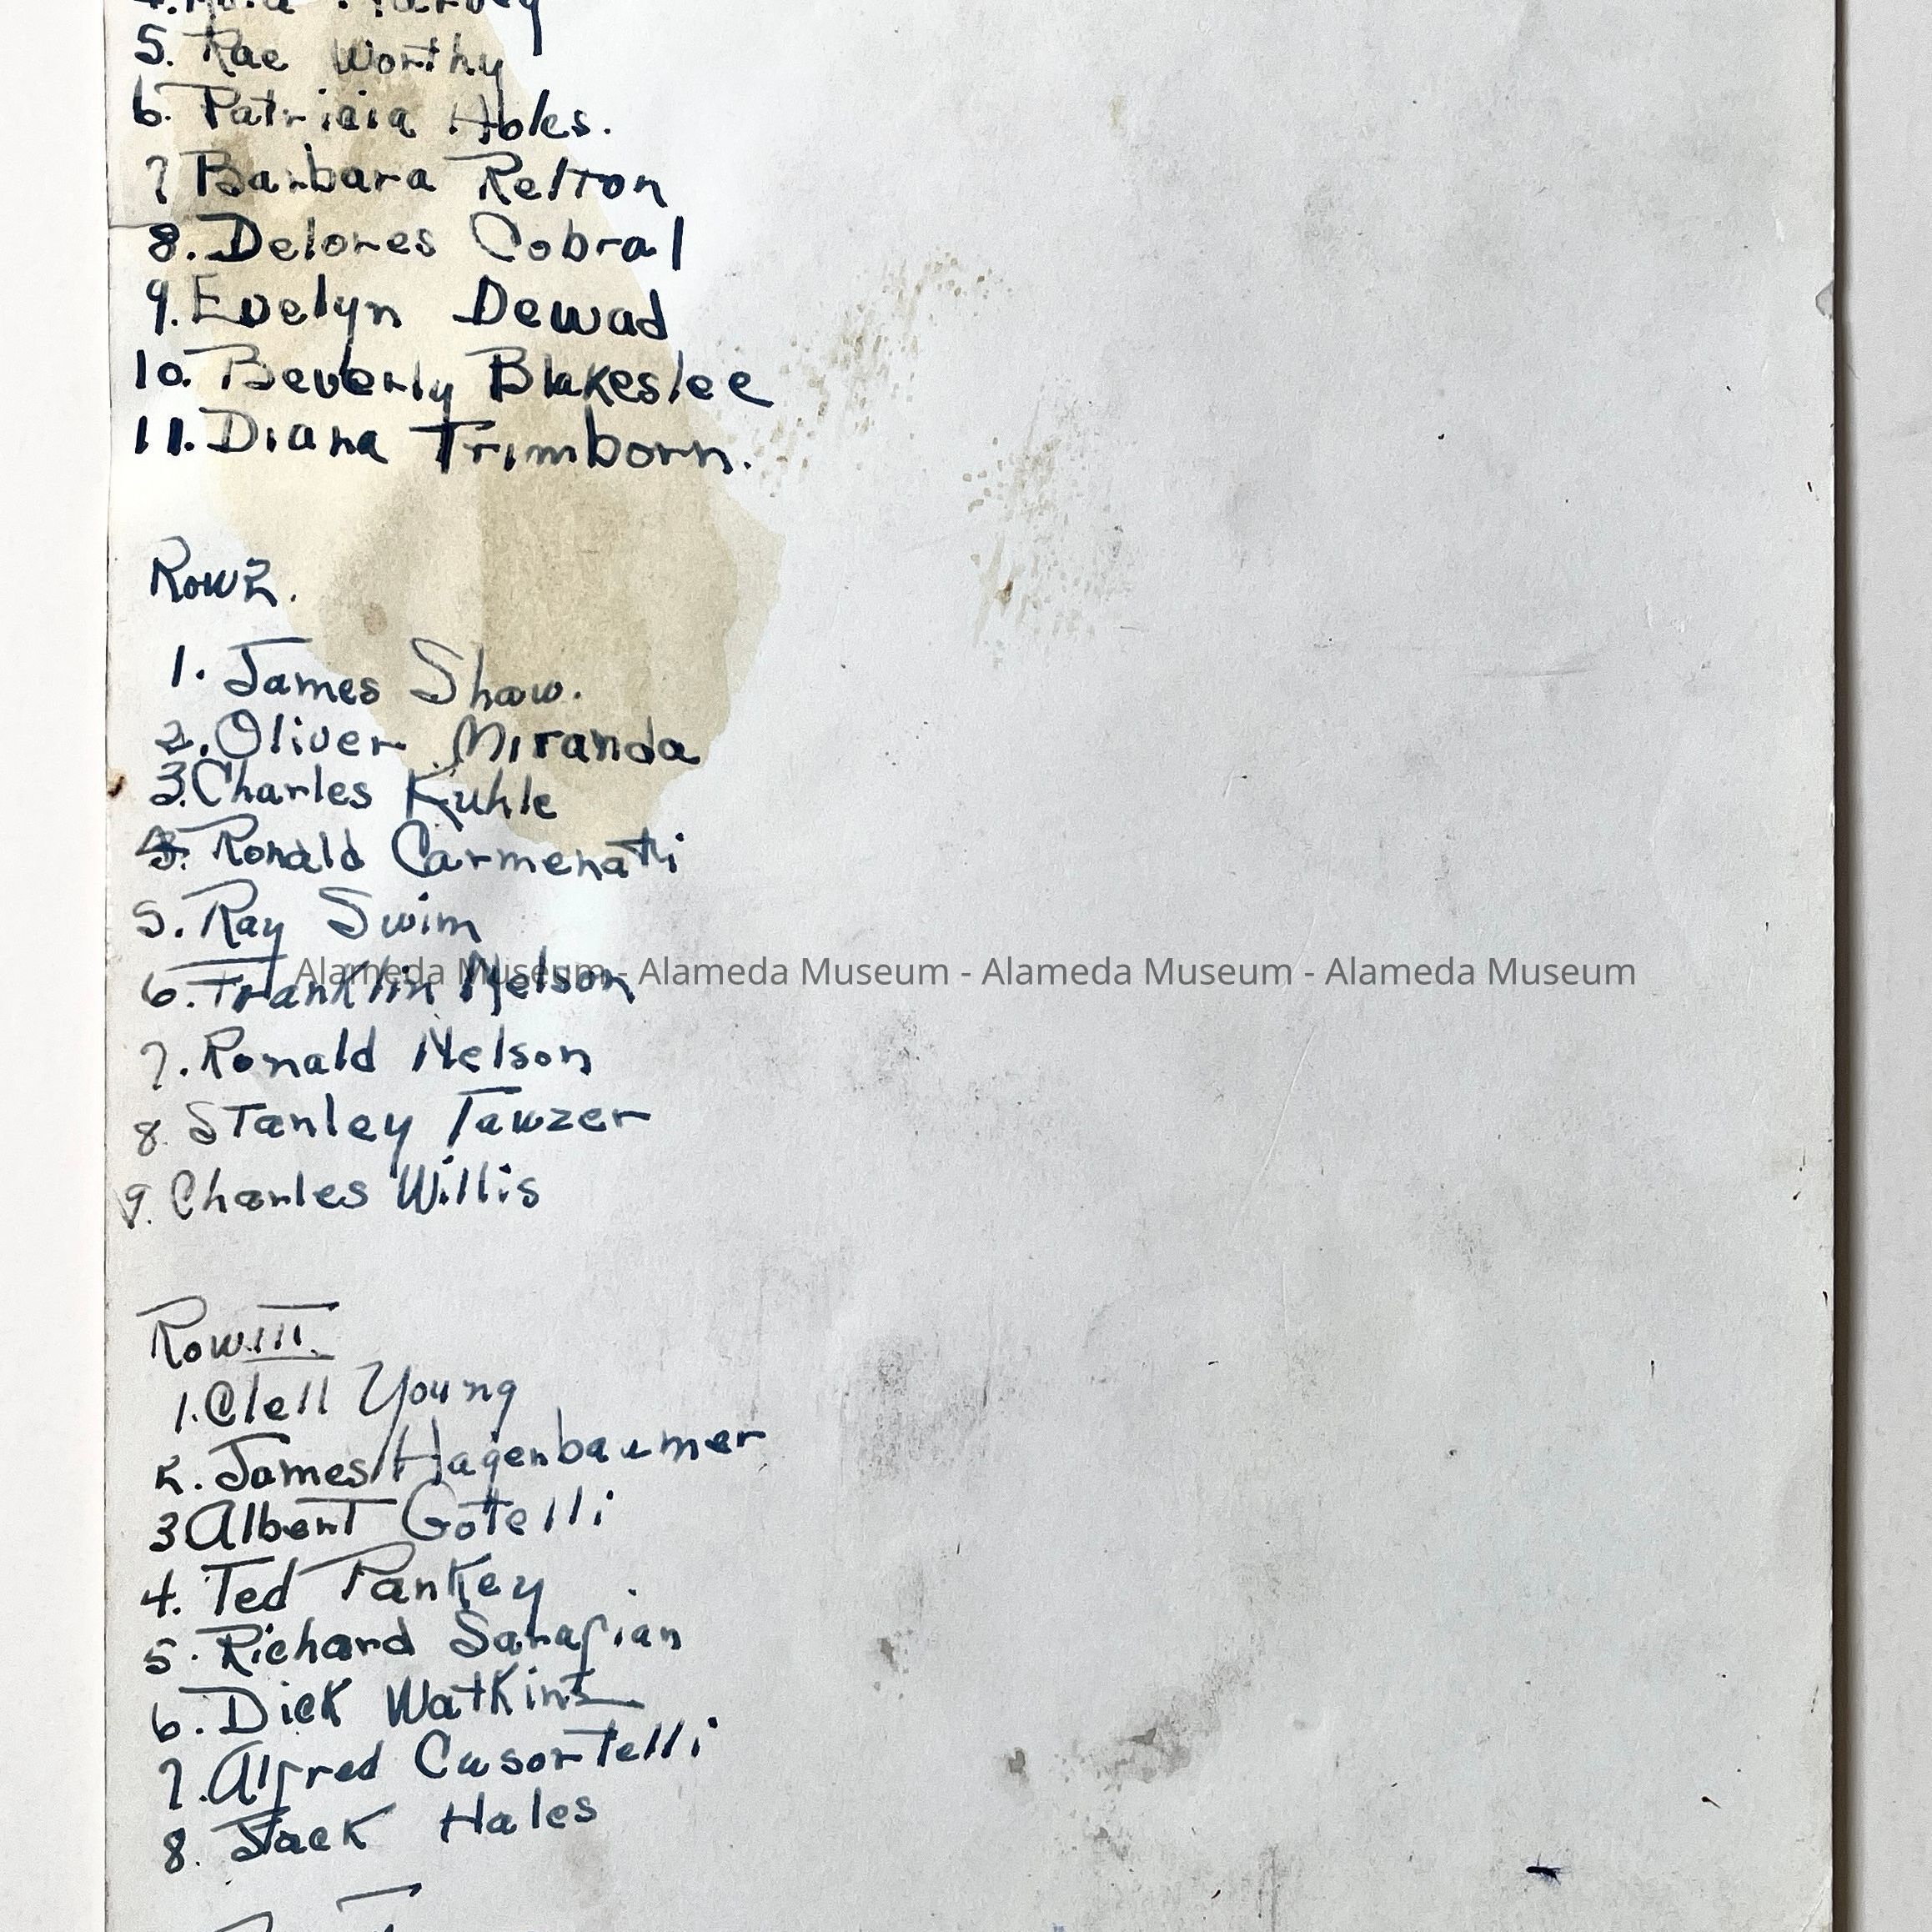 5. Rae Worthy
6. Patricia Holes.
7 Barbara Relton
8. Delores Cobral
9. Evelyn Dewad
10. Beverly Blakeslee
11. Diana Trimborn.
Row 2.
1. James Shaw.
2. Oliver Miranda
3. Charles Kuhle
4. Ronald Carmenatti
5. Ray Swim
Alameda Museum - Alameda Museum - Alameda Museum - Alameda Museum
6. Franklin Nelson
7. Ronald Nelson
8 Stanley Tawzer
9. Charles Willis
Row III.
1. Clell Young
2. James Hagenbaumer
3 Albert Gotelli
4. Ted Pankey
5. Richard Sarafian
6. Dick Watkins
7. Alfred Cusortelli
8. Jack Hales